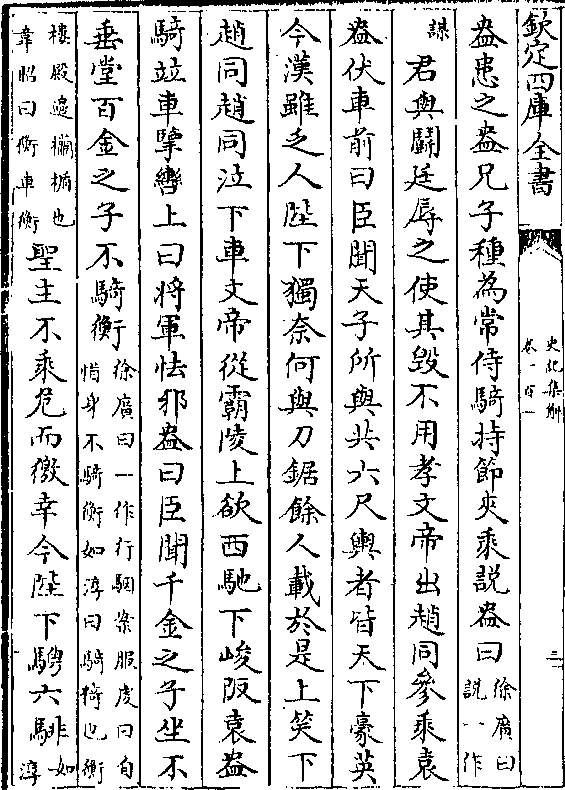 欽定四庫全書
史記集解
卷一百一
三
盎患之盎兄子種為常侍騎持節夾乘説盎曰徐廣曰説一作
謀君與鬭廷辱之使其毀不用孝文帝出趙同參乘袁
盎伏車前曰臣聞天子所與共六尺輿者皆天下豪英
今漢雖乏人陛下獨奈何與刀鋸餘人載於是上笑下
趙同趙同泣下車文帝從霸陵上欲西馳下峻阪袁盎
騎竝車擥轡上曰將軍怯邪盎曰臣聞千金之子坐不
垂堂百金之子不騎衡徐廣曰一作行駰案服虔曰自惜身不騎衡如淳曰騎猗也衡
樓殿邊欄楯也韋昭曰衡車衡聖主不乘危而徼幸今陛下騁六騑如淳